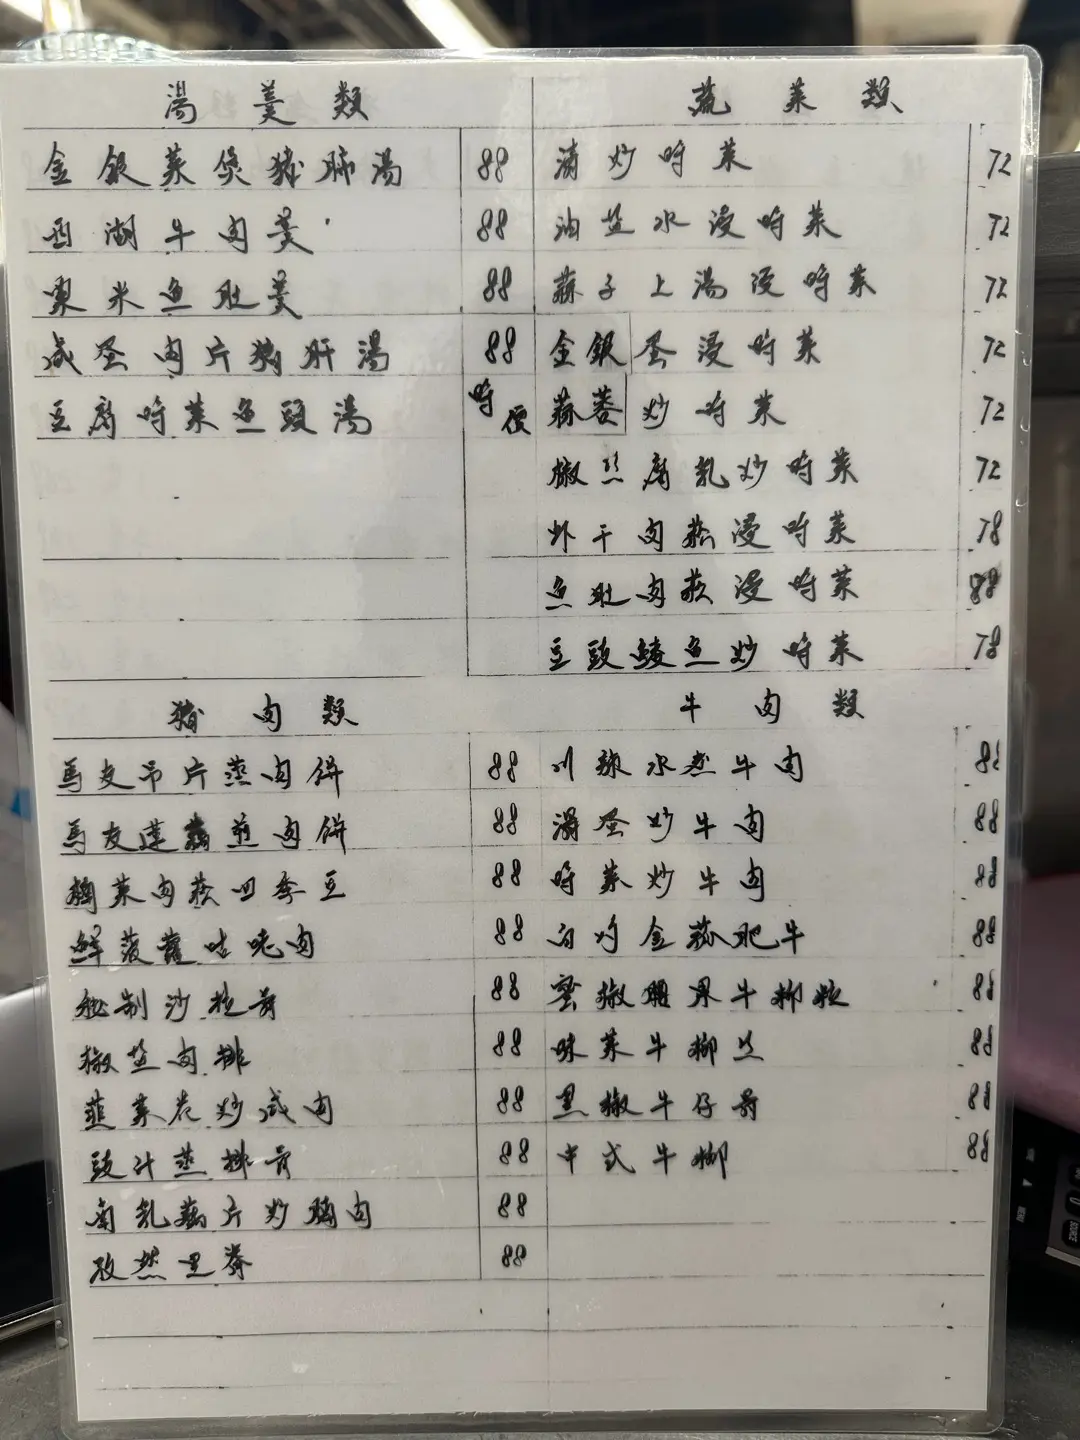 湯羹類
金銀菜煲豬肺湯 88
西湖牛肉羹 88
粟米魚肚羹 88
咸蛋肉片豬肝湯 88
豆腐時菜魚頭湯 時價
蔬菜類
清炒時菜 72
油盐水浸時菜 72
蒜子上湯浸時菜 72
金銀蛋浸時菜 72
蒜蓉炒時菜 72
椒丝腐乳炒時菜 72
虾干肉菘浸時菜 78
魚肚肉菘浸時菜 88
豆豉鲮魚炒時菜 78
豬肉類
馬友吊片蒸肉饼 88
馬友蓮藕煎肉饼 88
榄菜肉菘四季豆 88
鲜菠蘿咕咾肉 88
秘制沙拉骨 88
椒盐肉排 88
韮菜花炒咸肉 88
豉汁蒸排骨 88
南乳藕片炒腩肉 88
孜然里脊 88
牛肉類
川辣水煮牛肉 88
滑蛋炒牛肉 88
時菜炒牛肉 88
白灼金菇肥牛 88
蜜椒腰果牛柳粒 88
味菜牛柳丝 88
黑椒牛仔骨 88
中式牛柳 88